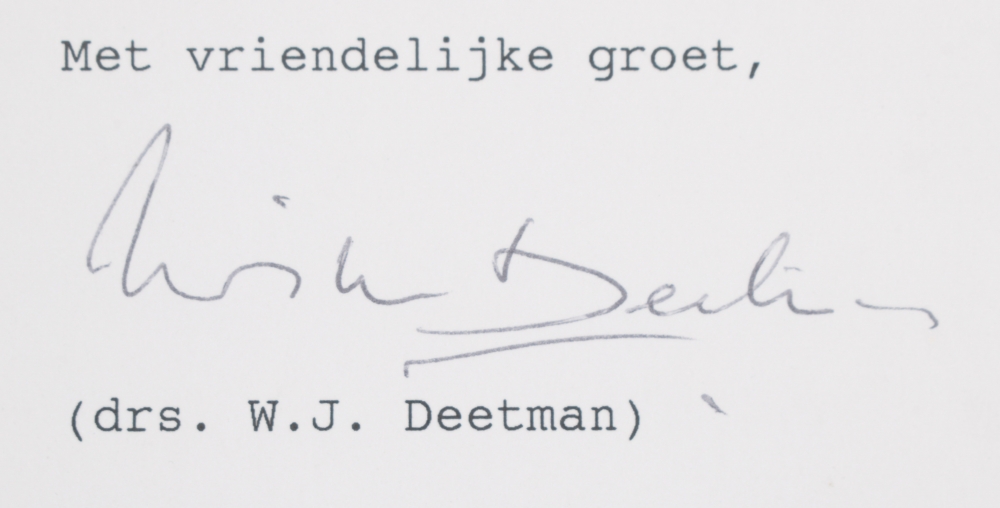 Met vriendelijke groet,
(drs. W.J. Deetman)